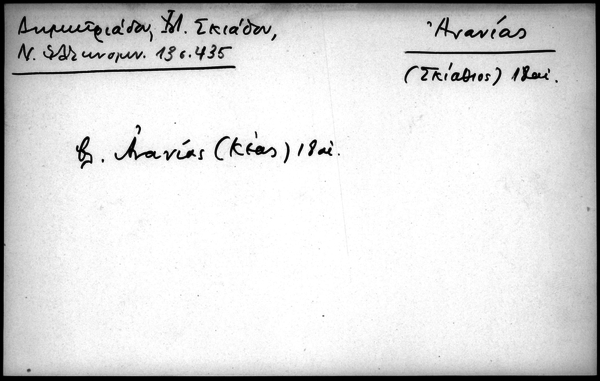 Δημητριάδου, Σκιάθου,
Ν. Ἑλληνομν. 13 σ. 435
Ἀνανίας
(Σκίαθος) 18 αἰ.
βλ. Ἀνανίας (Κέας) 18 αἰ.